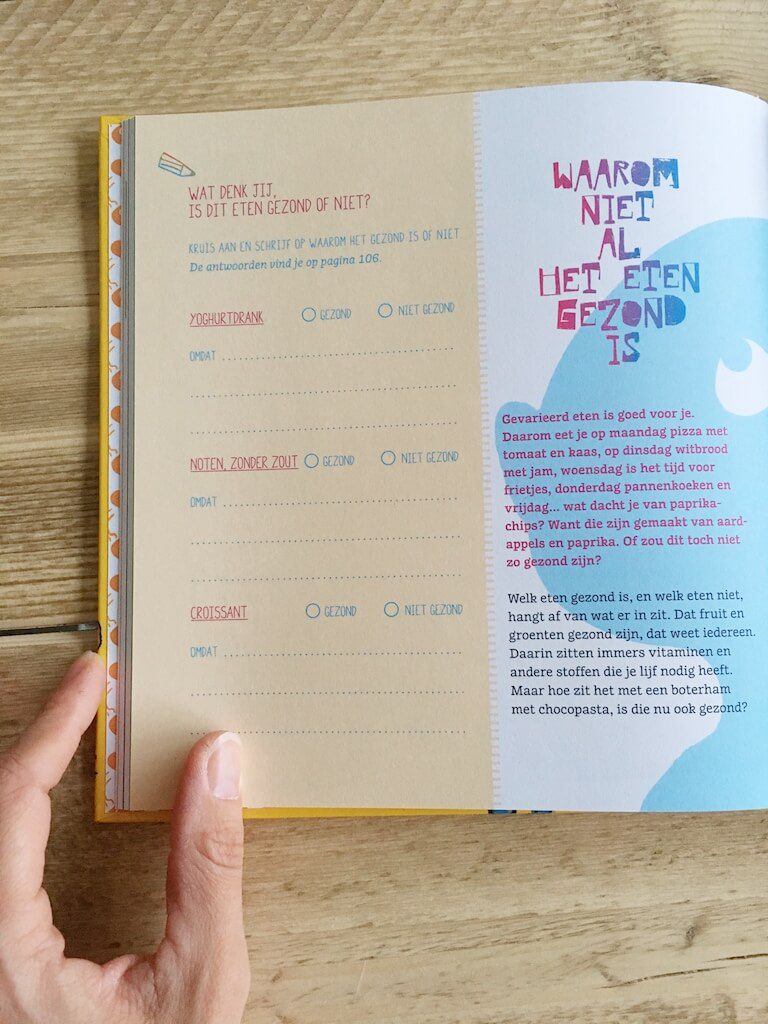 WAT DENK JIJ,
IS DIT ETEN GEZOND OF NIET?
KRUIS AAN EN SCHRIJF OP WAAROM HET GEZOND IS OF NIET.
De antwoorden vind je op pagina 106.
YOGHURTDRANK GEZOND NIET GEZOND
OMDAT
NOTEN, ZONDER ZOUT GEZOND NIET GEZOND
OMDAT
CROISSANT GEZOND NIET GEZOND
OMDAT
WAAROM
NIET
AL
HET ETEN
GEZOND
IS
Gevarieerd eten is goed voor je.
Daarom eet je op maandag pizza met
tomaat en kaas, op dinsdag witbrood
met jam, woensdag is het tijd voor
frietjes, donderdag pannenkoeken en
vrijdag... wat dacht je van paprika-
chips? Want die zijn gemaakt van aard-
appels en paprika. Of zou dit toch niet
zo gezond zijn?
Welk eten gezond is, en welk eten niet,
hangt af van wat er in zit. Dat fruit en
groenten gezond zijn, dat weet iedereen.
Daarin zitten immers vitaminen en
andere stoffen die je lijf nodig heeft.
Maar hoe zit het met een boterham
met chocopasta, is die nu ook gezond?